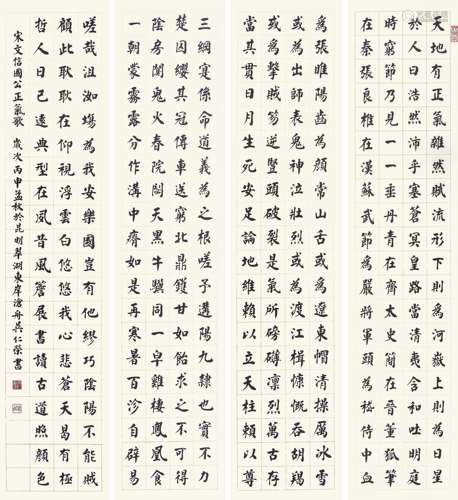 天地有正氣雜然賦流形下則為河嶽上則為日星
於人曰浩然沛乎塞蒼冥皇路當清夷含和吐明庭
時窮節乃見一一垂丹青在齊太史簡在晉董狐筆
在秦張良椎在漢蘇武節為嚴將軍頭為嵇侍中血
為張睢陽齒為顏常山舌或為遼東帽清操厲冰雪
或為出師表鬼神泣壯烈或為渡江楫慷慨吞胡羯
或為擊賊笏逆豎頭破裂是氣所磅礴凜烈萬古存
當其貫日月生死安足論地維賴以立天柱賴以尊
三綱實係命道義為之根嗟予遘陽九隸也實不力
楚囚纓其冠傳車送窮北鼎鑊甘如飴求之不可得
陰房闃鬼火春院閟天黑牛驥同一皁雞棲鳳凰食
一朝蒙霧露分作溝中瘠如是再寒暑百沴自辟易
嗟哉沮洳場為我安樂國豈有他繆巧陰陽不能賊
顧此耿耿在仰視浮雲白悠悠我心悲蒼天曷有極
哲人日已遠典型在夙昔風簷展書讀古道照顏色
宋文信國公正氣歌 歲次丙申孟秋於昆明翠湖東岸滄舟吳仁榮書